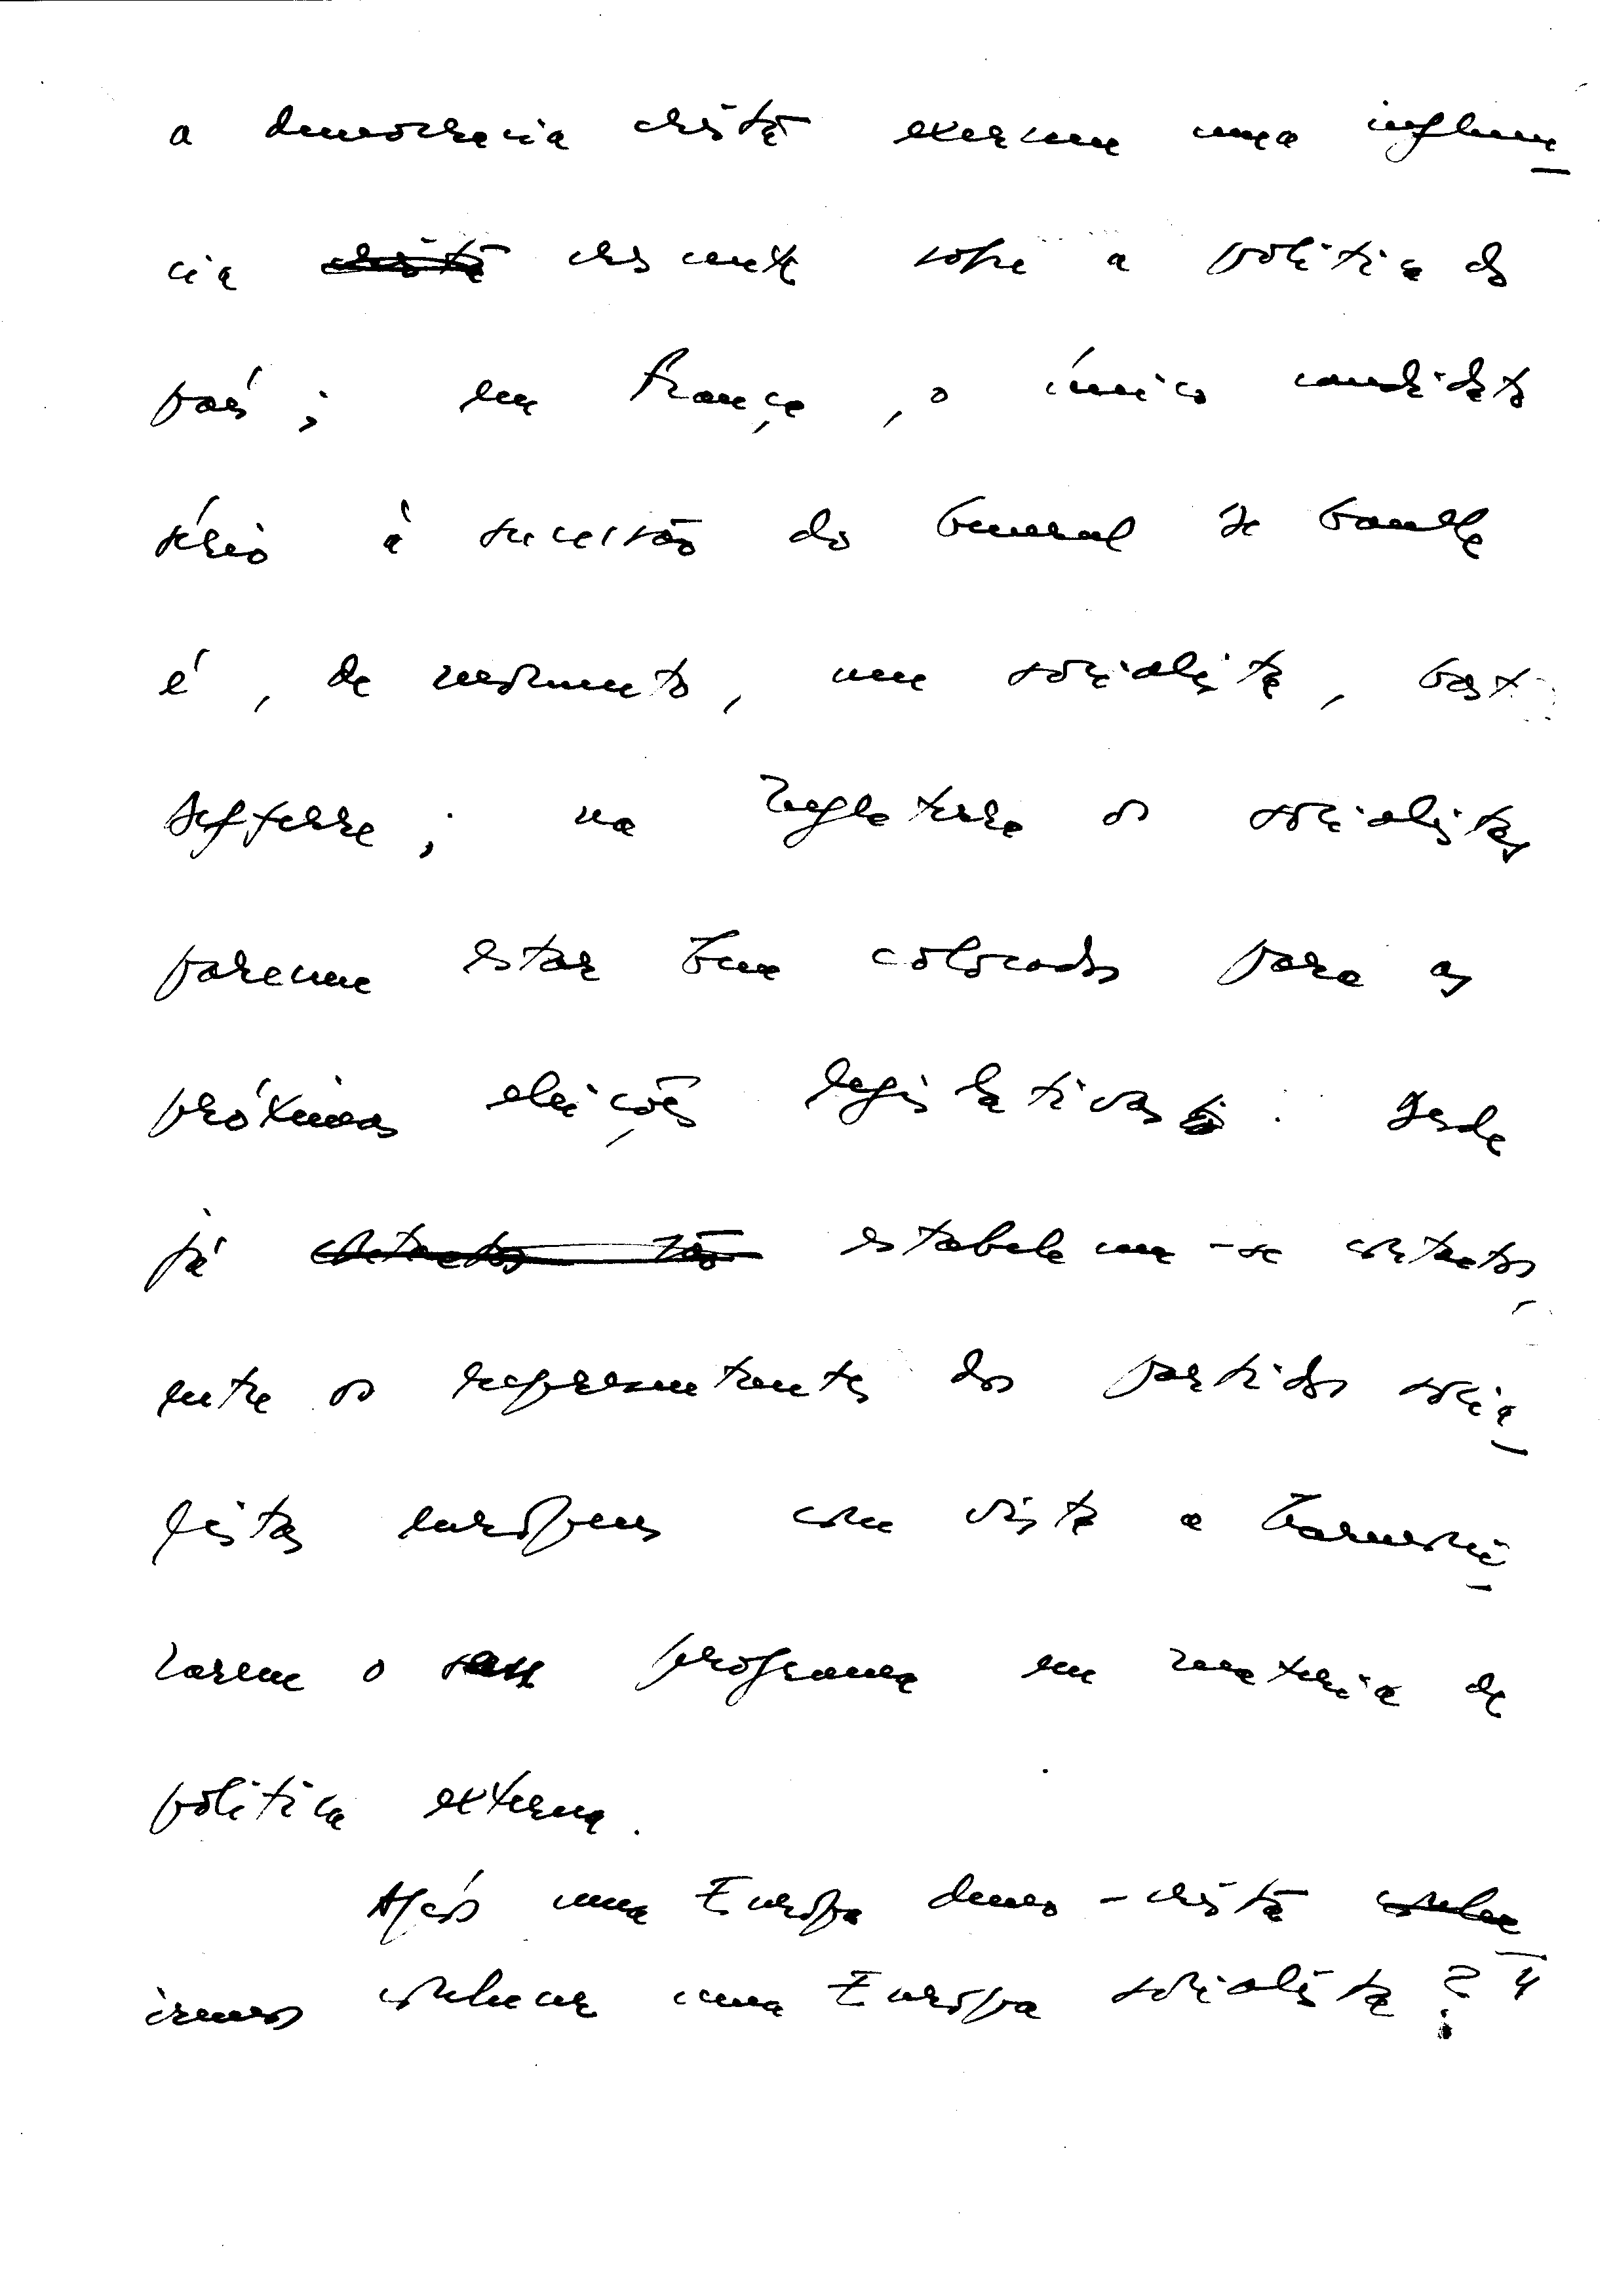 a democracia cristã exercem uma influên-
cia ~~cristã~~ crescente sobre a política do
país; em França, o único candidato
sério à sucessão do General de Gaulle
é, de momento, um socialista, Gaston
Defferre; na Inglaterra os socialistas
parecem estar bem colocados para as
próximas eleições legislativas. Desde
já ~~contactos são~~ estabelecem-se contactos,
entre os representantes dos partidos socia-
listas europeus com vista a harmoni-
zarem o programa em matéria de
política externa.
Após uma Europa demo-cristã ~~conhe~~
iremos conhecer uma Europa socialista?"